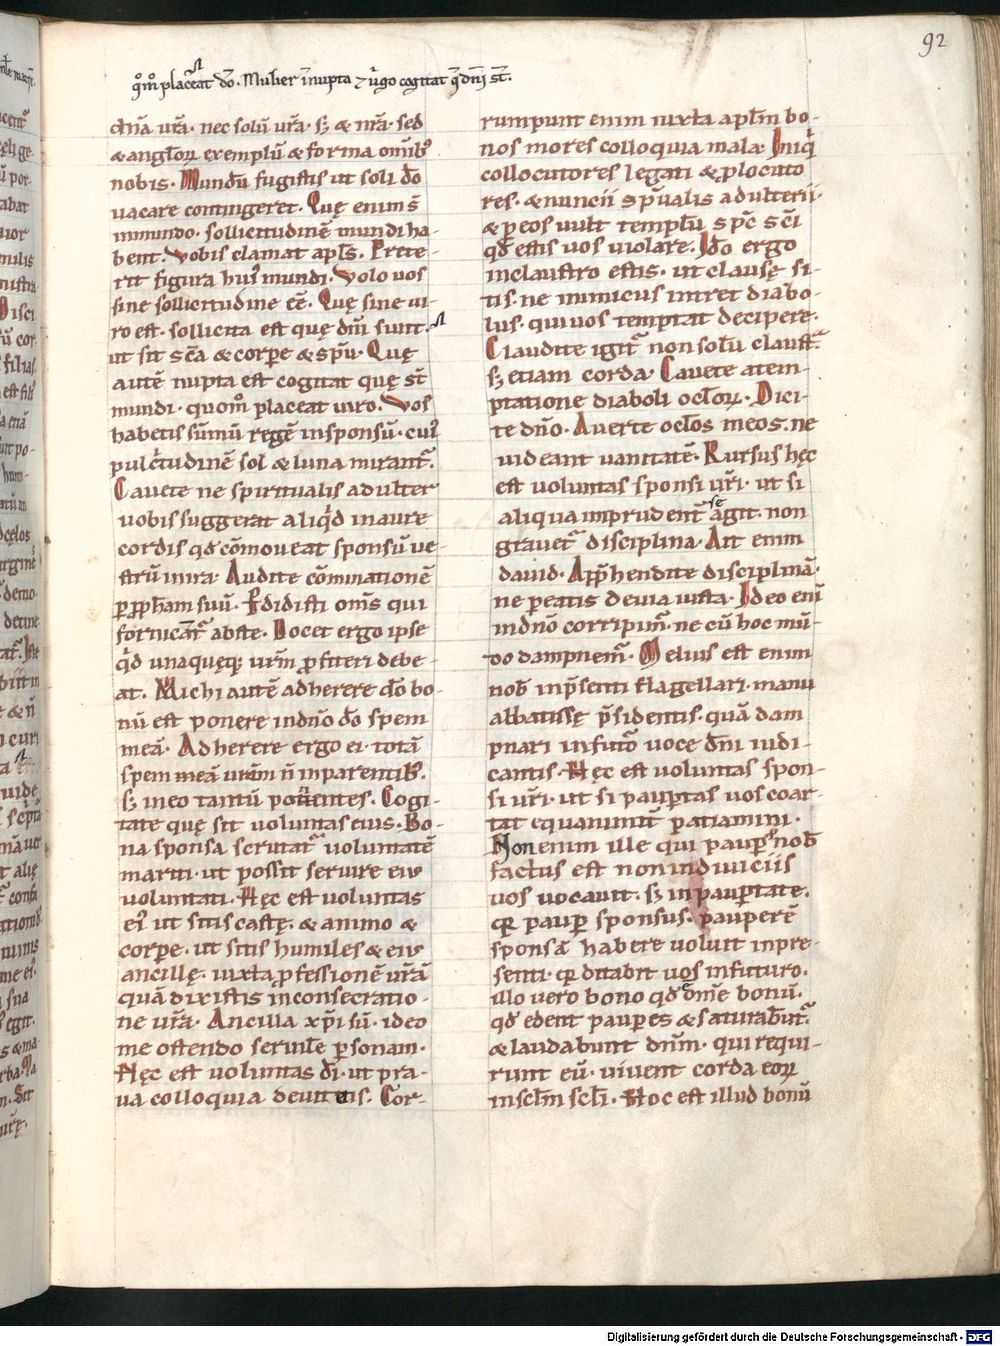 92
qm̊m placeat do̅. Mulier i̅nupta ⁊ u̾go cogitat q̅ dn̅i st̅.
chn̅a ur̅a. nec solu̅ ur̅a. sꝫ & nr̅a. sed
& anglo̅ꝝ exemplu̅ & forma om̅ibꝰ
nobis. Mundu̅ fugistis ut soli do̅
uacare contingeret. Quę enim s̅
inmundo. sollicitudine̅ mundi ha-
bent. Vobis clamat apl̅s. Prete-
rit figura huiꝰ mundi. Volo uos
sine sollicitudine ee̅. Quę sine ui-
ro est. sollicita est quę dn̅i sunt.
ut sit sc̅a & corpe & sp̅u. Quę
aute̅ nupta est cogitat quę st̅
mundi. quom̊ placeat uiro. Vos
habetis su̅mu̅ rege̅ insponsu̅. cuiꝰ
pulc̅tudine̅ sol & luna mirant᷑.
Cauete ne spiritualis adulter
uobis suggerat aliqͥd inaure
cordis qd̅ co̅moueat sponsu̅ ue-
stru̅ inira. Audite co̅minatione̅
ꝑꝓph̅am suu̅. Ꝑdidisti om̅s qui
fornicant᷑ abste. Docet ergo ipse
qͥd unaquęqꝫ ur̅m ꝓfiteri debe-
at. Michi aute̅ adherere do̅ bo-
nu̅ est ponere indn̅o do̅ spem
mea̅. Adherere ergo ei. tota̅
spem mea̅ ura̅m n̅ inparentibꝰ.
sꝫ ineo tantu̅ ponentes. Cogi-
tate quę sit uoluntas eius. Bo-
na sponsa scrutat᷑ uoluntate̅
mariti. ut possit seruire eiꝰ
uoluntati. Hęc est uoluntas
eiꝰ ut sitis castę. & animo &
corpe. ut sitis humiles & eiꝰ
ancillę. iuxta ꝓfessione̅ ur̅a̅
qua̅ dixistis inconsecratio-
ne ur̅a. Ancilla xp̅i su̅. ideo
me ostendo seruile̅ ꝑsonam.
Hęc est uoluntas di̅. ut pra-
ua colloquia deuitetis. Cor-
rumpunt enim iuxta apl̅m bo-
nos mores colloquia mala. Iniqͥ
collocutores legati & ꝓlocuto
res. & nuncii sp̅ualis adulterii.
& ꝑeos uult templu̅ sp̅c sc̅i
qd̅ estis uos uiolare. Ido̅ ergo
inclaustro estis. ut clausę si-
tis. ne inimicus intret diabo-
lus. qui uos temptat decipere.
Claudite igit᷑ non solu̅ claust᷑.
sꝫ etiam corda. Cauete atem-
ptatione diaboli oclo̅ꝝ. Dici-
te dn̅o. Auerte ocl̅os meos. ne
uideant uanitate̅. Rursus hęc
est uoluntas sponsi ur̅i. ut si
aliqua imprudent᷑ se agit. non
grauet᷑ disciplina. Ait enim
dauid. App̅hendite disciplina̅.
ne ꝑeatis deuia iusta. Ideo eni̅
indn̅o corripim᷑. ne cu̅ hoc mu̅-
do dampnem᷑. Melius est enim
nob̅ inp̅senti flagellari. manu
abbatissę p̅sidentis. qua̅ dam
pnari infut᷑o uoce dn̅i iudi-
cantis. Hęc est uoluntas spon-
si ur̅i. ut si pauꝑtas uos coar-
tat equanimit᷑ patiamini.
Non enim ille qui pauꝑ ꝓ nob̅
factus est non indiuiciis
uos uocauit. sꝫ inpauꝑtate.
qꝛ pauꝑ sponsus. paupere̅
sponsa̅ habere uoluit inpre-
senti. qꝛ ditabit uos infuturo.
illo uero bono qd̅ e̅ om̅e bonu̅.
qd̅ edent pauꝑes & saturabunt᷑.
& laudabunt dn̅m. qui requi-
runt eu̅. uiuent corda eoꝝ
inscl̅m scl̅i. Hoc est illud bonu̅
Digitalisierung gefördert durch die Deutsche Forschungsgemeinschaft - DFG